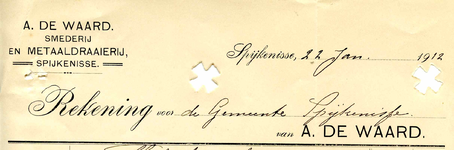 A. DE WAARD.
SMEDERIJ
EN METAALDRAAIERIJ,
SPIJKENISSE.
Spijkenisse, 22 Jan. 1912
Rekening voor de Gemeente Spijkenisse.
van A. DE WAARD.